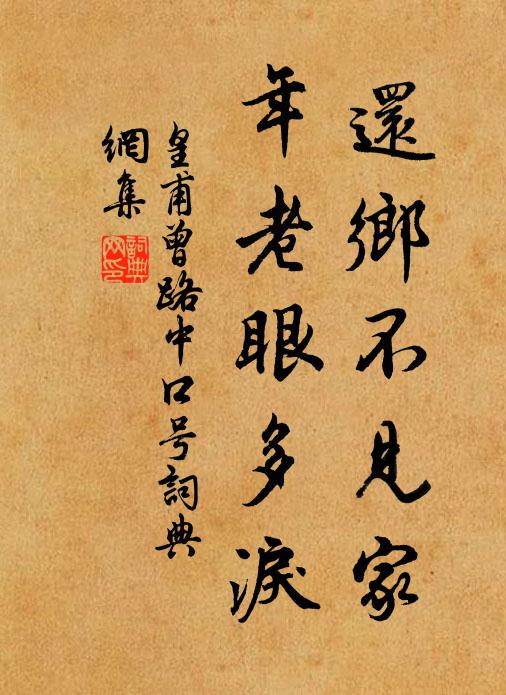 還鄉不見家
年老眼多淚
皇甫曾路中口号詞典
網集
詞典
网印